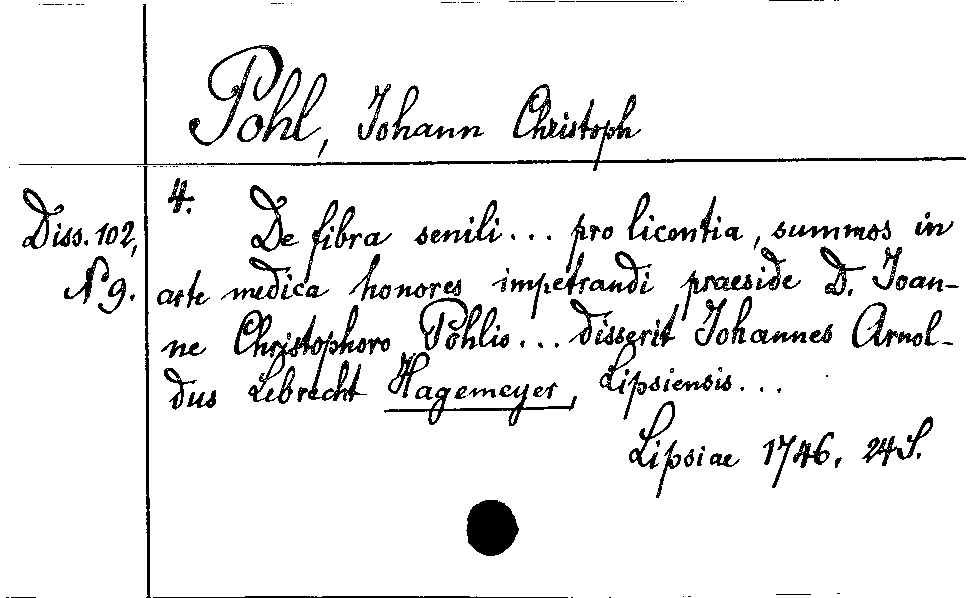 Pohl, Johann Christoph
4.
Diss. 102,
N 9.
De fibra senili... pro licentia, summos in
arte medica honores impetrandi praeside D. Joan-
ne Christophoro Pohlio... disserit Johannes Arnol-
dus Lebrecht Hagemeyer, Lipsiensis...
Lipsiae 1746. 24 S.